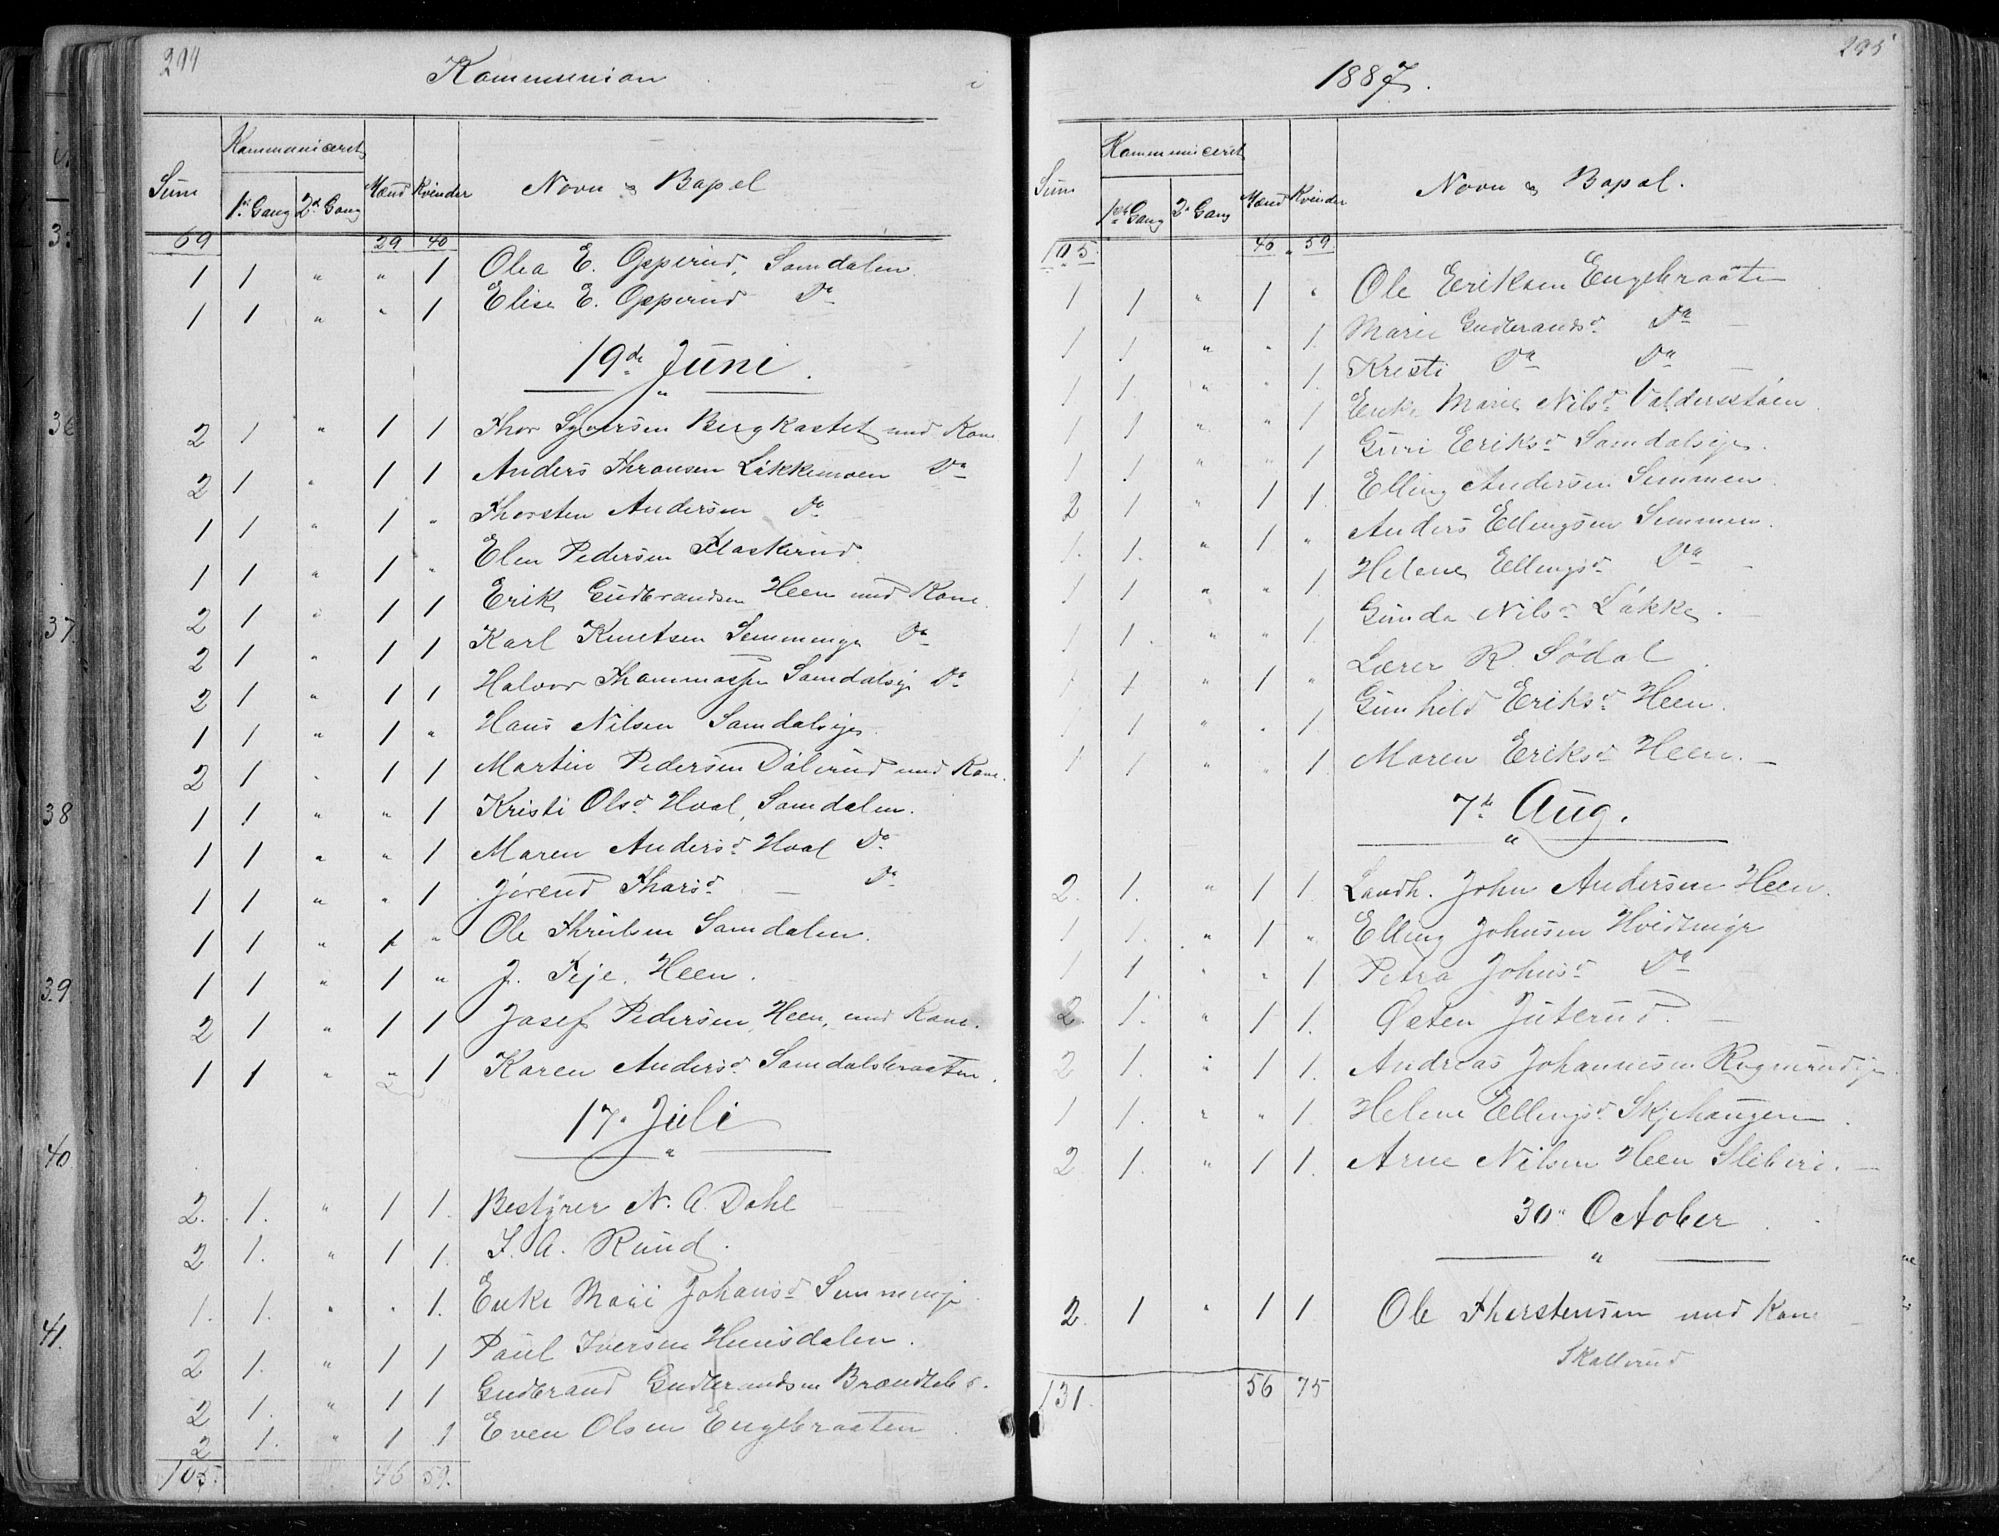 294
Kommunion i
Kommuniceret
Sum 1st Gang 2d Gang Mænd Kvinder Navn & Bopæl
69 29 40
1 1 " " 1 Olea E. Opperud, Somdalen.
1 1 " " 1 Elise E. Opperud Do
19de Juni.
2 1 " 1 1 Thor Syversen Bergkastet med Kone
2 1 " 1 1 Anders Thronsen Løkkemoen Do
1 1 " 1 " Thorsten Andersen Do
1 1 " 1 " Elen Pedersen Flaskerud.
2 1 " 1 1 Erik Gudbrandsen Heen med Kone.
2 1 " 1 1 Karl Knutsen Semminge Do
2 1 " 1 1 Halvor Thommassen Somdalseje Do
1 1 " 1 " Hans Nilsen Somdalseje
2 1 " 1 1 Martin Pedersen Dølerud med Kone.
1 1 " " 1 Kristi Olsd. Hval, Somdalen.
1 1 " " 1 Maren Andersd. Hval Do
1 1 " " 1 Jørend Tharsd. — Do
1 1 " 1 " Ole Thrulsen Somdalen.
1 1 " 1 " J. Teje. Heen.
2 1 " 1 1 Josef Pedersen Heen, med Kone.
1 1 " " 1 Karen Andersd. Somdalsbraaten.
17. Juli
2. 1. " 1 1. Bestyrer N. A. Dahl
2 1. " 1 1. S. A. Ruud.
1. 1. " " 1. Enke Mari Johansd. Semminge
2 1. " 1 1 Paul Iversen Hensdalen.
2 1. " 1 1 Gudbrand Gudbrandsen
2 1. " 1 1 Even Olsen Engebraaten
105. 46 59.
295
1887.
Kommuniceret
Sum 1st Gang 2. Gang Mænd Kvinder Navn & Bopæl.
105. 46 59.
1 1 " 1 " Ole Eriksen Engebraaten
1 1 " " 1. Marie Gudbrandsd. Do —
1 1. " " 1. Kristi Do Do
1 1 " " 1 Enke Marie Nilsd. Valdersstøen.
1 1. " " 1 Guri Eriksd. Somdalseje.
2 1 " 1 1. Elling Andersen Semmen.
1. 1. " 1 " Anders Ellingsen Semmen.
1 1 " " 1 Helene Ellingsd. Do —
1 1. " " 1. Gunda Nilsd. Løkke. —
1 1 " 1 " Lærer R. Sødal.
1 1 " " 1. Gunhild Eriksd. Heen.
1 1 " " 1 Maren Eriksd. Heen. —
7de Aug.
2. 1. " 1 1. Landh. John Andersen Heen.
1 1. " 1 " Elling Johnsen Hvidtmyr
1 1 " " 1 Petra Johnsd. Do
2. 1. " 1 1. Østen Juterud. —
2 1. " 1 1. Andreas Johannesen
1 1. " " 1. Helene Ellingsd. Skjehaugen.
2. 1. " 1 1. Arne Nilsen Heen Sliberi. —
30. October.
2. 1 " 1 1 Ole Thorstensen med Kone
Skollerud
131. 56 75
35
36
37.
38
39.
40
41.